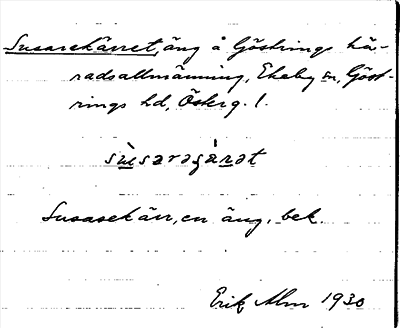 Susarekärret, äng å Göstrings hä-
radsallmänning, Ekeby sn, Göst-
rings hd, Österg. l.
sùsarəsɕárət
Susasekärr, en äng, bek.
Erik Alm 1930